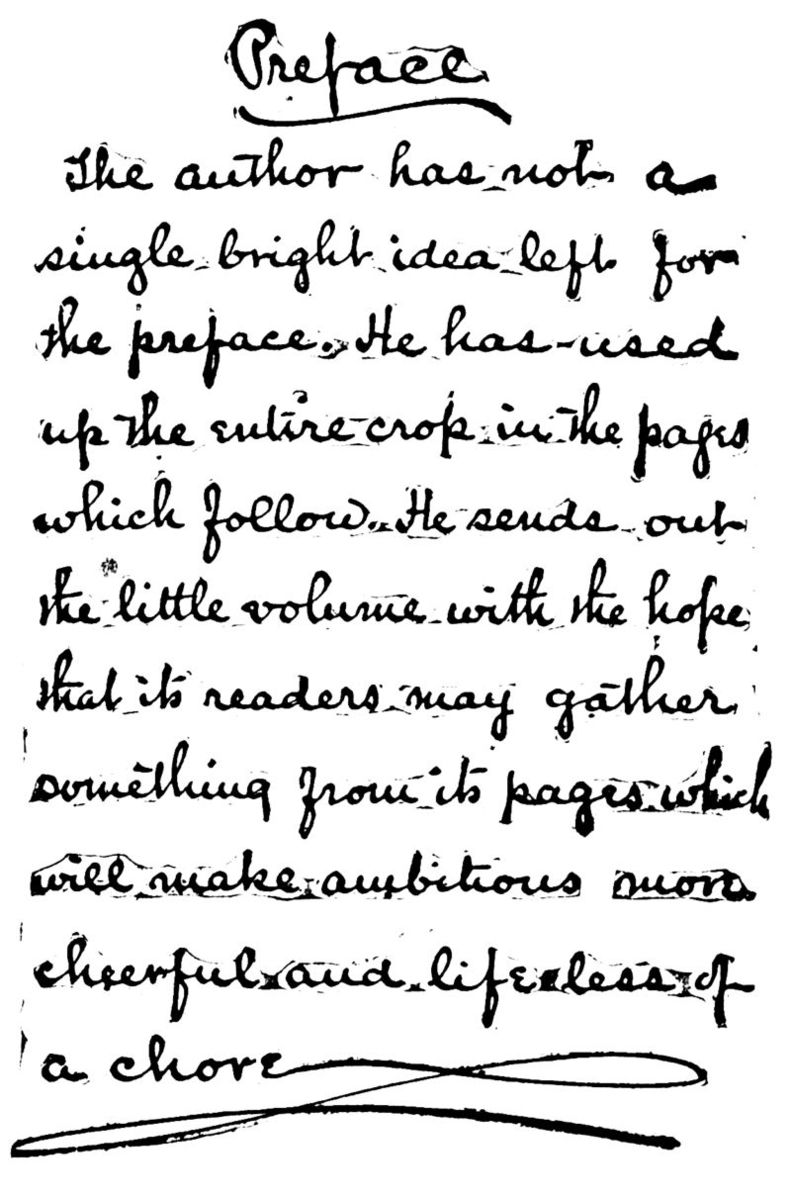 Preface
The author has not a
single bright idea left for
the preface. He has used
up the entire crop in the pages
which follow. He sends out
the little volume with the hope
that its readers may gather
something from its pages which
will make ambitious more
cheerful and life less of
a chore